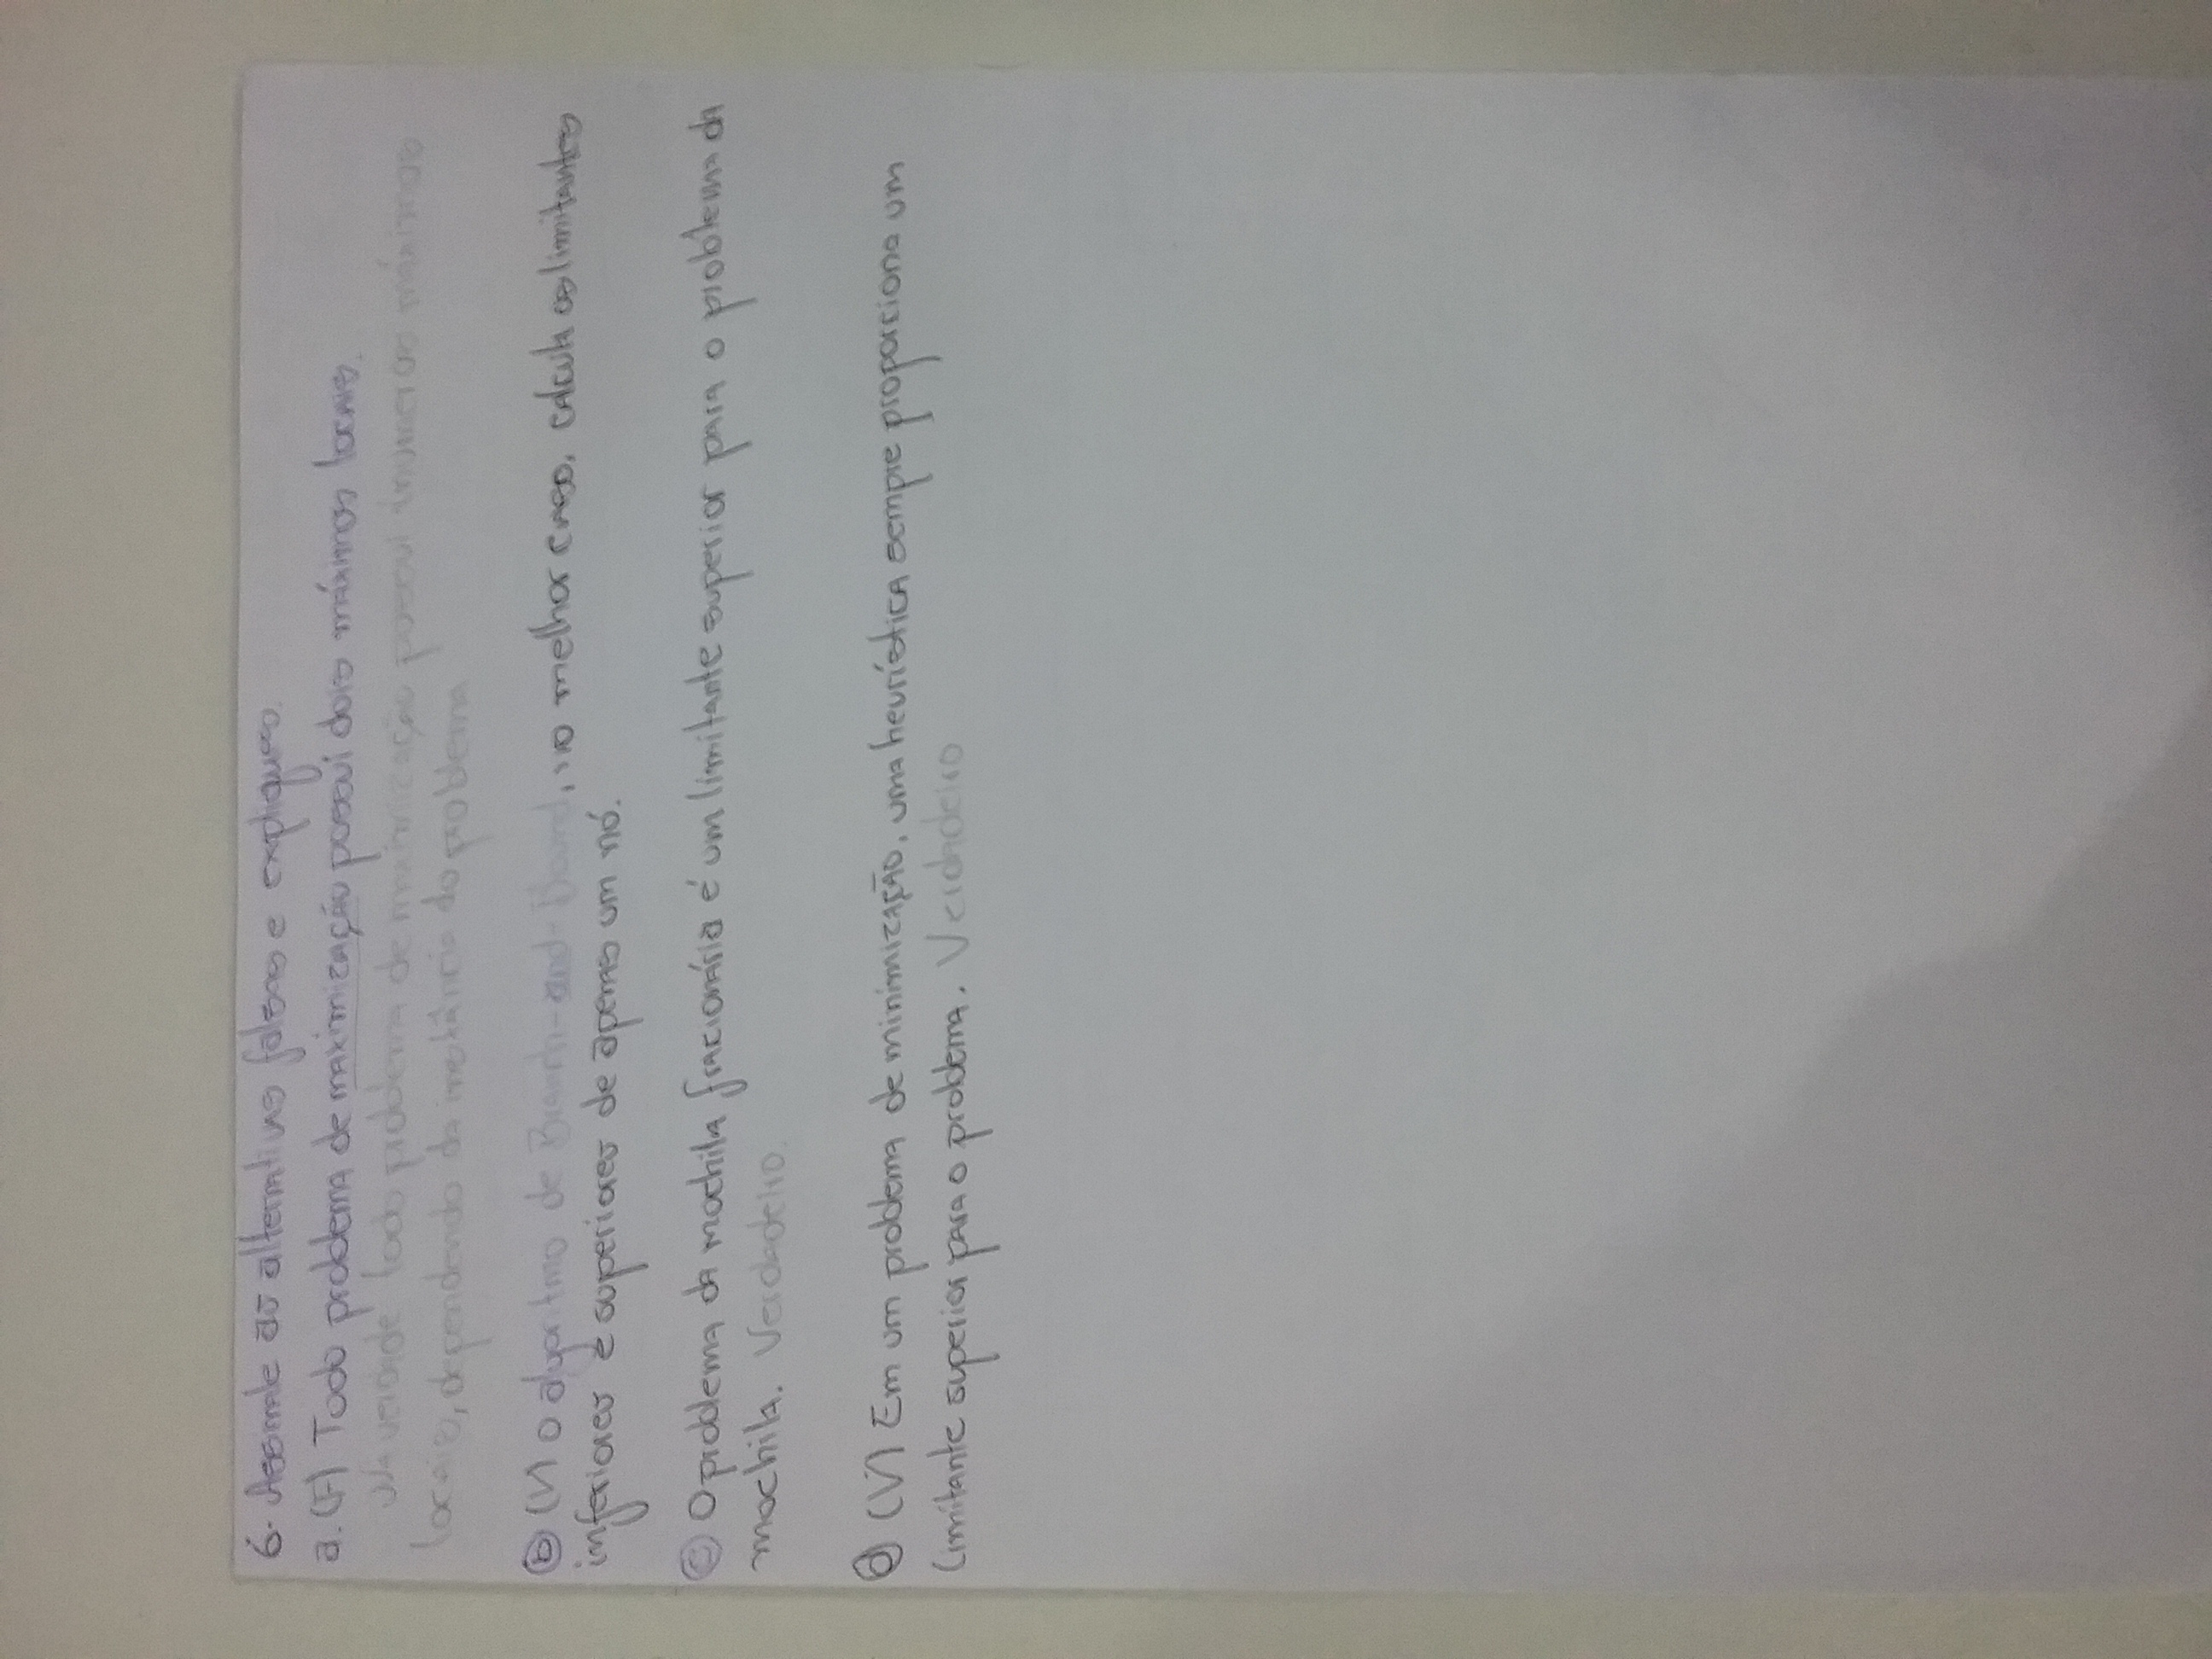 6. Assinale as alternativas falsas e explique as.
a. (F) Todo problema de maximização possui dois máximos locais.
Na verdade todo problema de maximização possui inumeros máximos
locais, dependendo da instância do problema
b (V) O algoritmo de Branch-and-Bound, no melhor caso, calcula os limitantes
inferiores e superiores de apenas um nó.
c O problema da mochila fracionária é um limitante superior para o problema da
mochila. Verdadeiro.
d (V) Em um problema de minimização, uma heurística sempre proporciona um
limitante superior para o problema. Verdadeiro